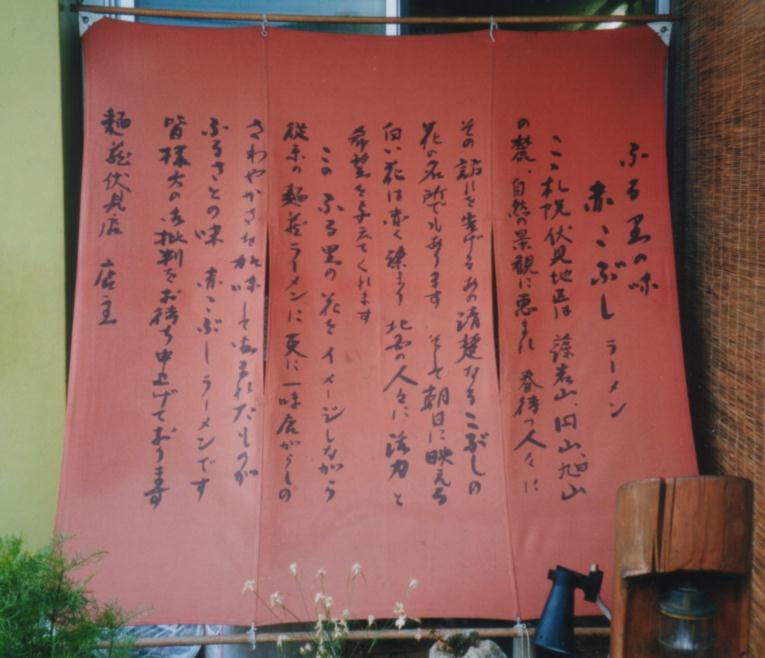 ふる里の味
赤こぶし ラーメン
ここ札幌伏見地区は 藻岩山、円山、旭山
の麓、自然の景観に恵まれ 春待つ人々に
その訪れを告げるあの清楚なるこぶしの
花の名所でもあります そして朝日に映える
白い花は赤く染まり 北国の人々に活力と
希望を与えてくれます
この ふる里の花をイメージしながら
従来の麺蔵ラーメンに更に一味唐がらしの
さわやかさを加味してうまれたものが
ふるさとの味 赤こぶしラーメンです
皆様方の御批判をお待ち申上げております
麺蔵伏見店 店主